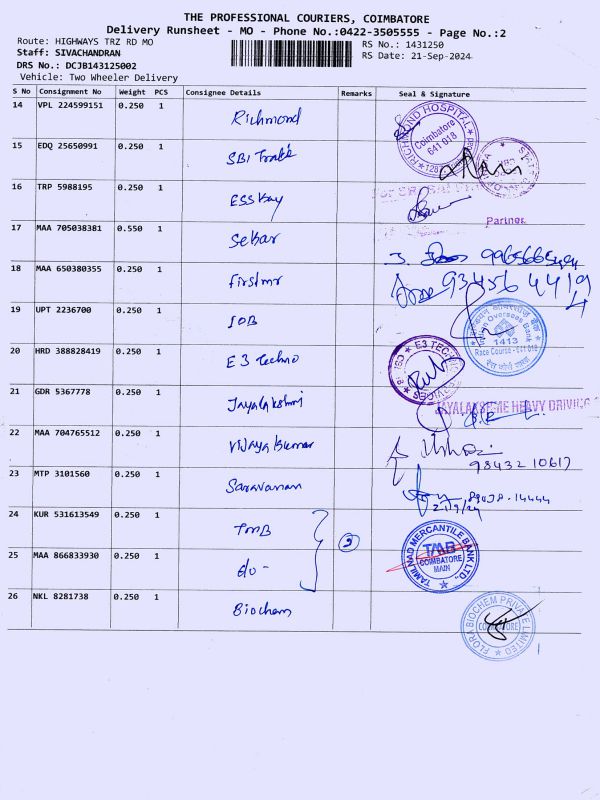 THE PROFESSIONAL COURIERS, COIMBATORE
Delivery Runsheet - MO - Phone No.:0422-3505555 - Page No.:2
Route: HIGHWAYS TRZ RD MO
RS No.: 1431250
Staff: SIVACHANDRAN
RS Date: 21-Sep-2024
DRS No.: DCJB143125002
Vehicle: Two Wheeler Delivery
S No Consignment No Weight PCS Consignee Details Remarks Seal & Signature
14 VPL 224599151 0.250 1 Richmond
RICHMOND HOSPITAL Coimbatore 641 018
15 EDQ 25650991 0.250 1 SBI Trade
16 TRP 5988195 0.250 1 ESSKay
Partner
17 MAA 705038381 0.550 1 Sekar
18 MAA 650380355 0.250 1 firstmr 93456 44194
19 UPT 2236700 0.250 1 IOB
Indian Overseas Bank 1413 Race Course - 641 018
20 HRD 388828419 0.250 1 E3 Techno
21 GDR 5367778 0.250 1 Jayalakshmi
HEAVY DRIVING
22 MAA 704765512 0.250 1 Vijaya Kumar
98432 10617
23 MTP 3101560 0.250 1 Saravanan
21/9/24
24 KUR 531613549 0.250 1 TMB
TAMILNAD MERCANTILE BANK LTD. TMB COIMBATORE MAIN
25 MAA 866833930 0.250 1 do -
26 NKL 8281738 0.250 1 Biochem
FLORA BIOCHEM PRIVATE LIMITED